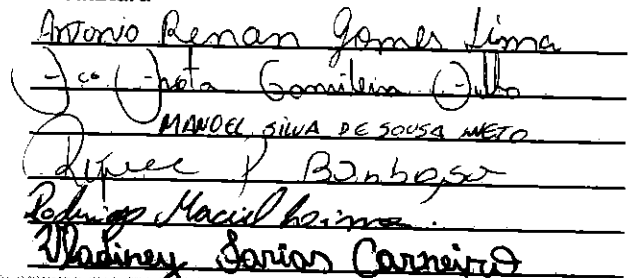 Antonio Renan Gomes Lima
Fco Frota Gomileira Filho
MANOEL SILVA DE SOUSA NETO
P Barbosa
Rodrigo Maciel
Vladiney Farias Carneiro